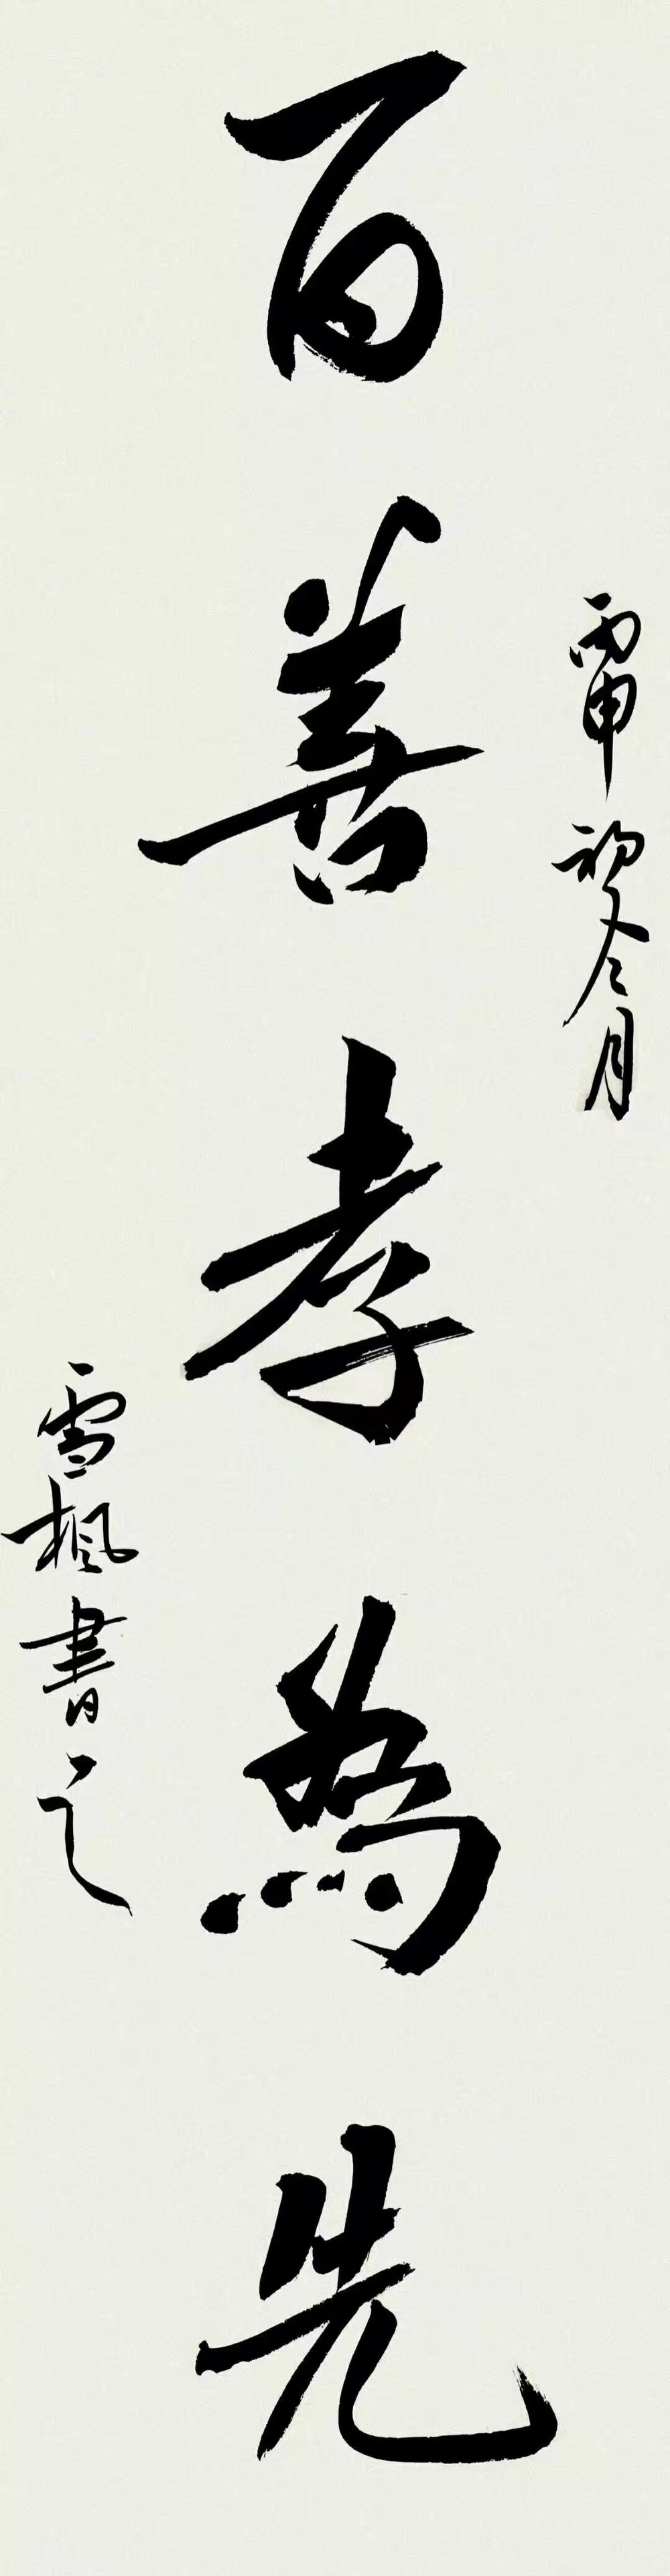 丙申初冬月
百善孝為先
雪楓書之